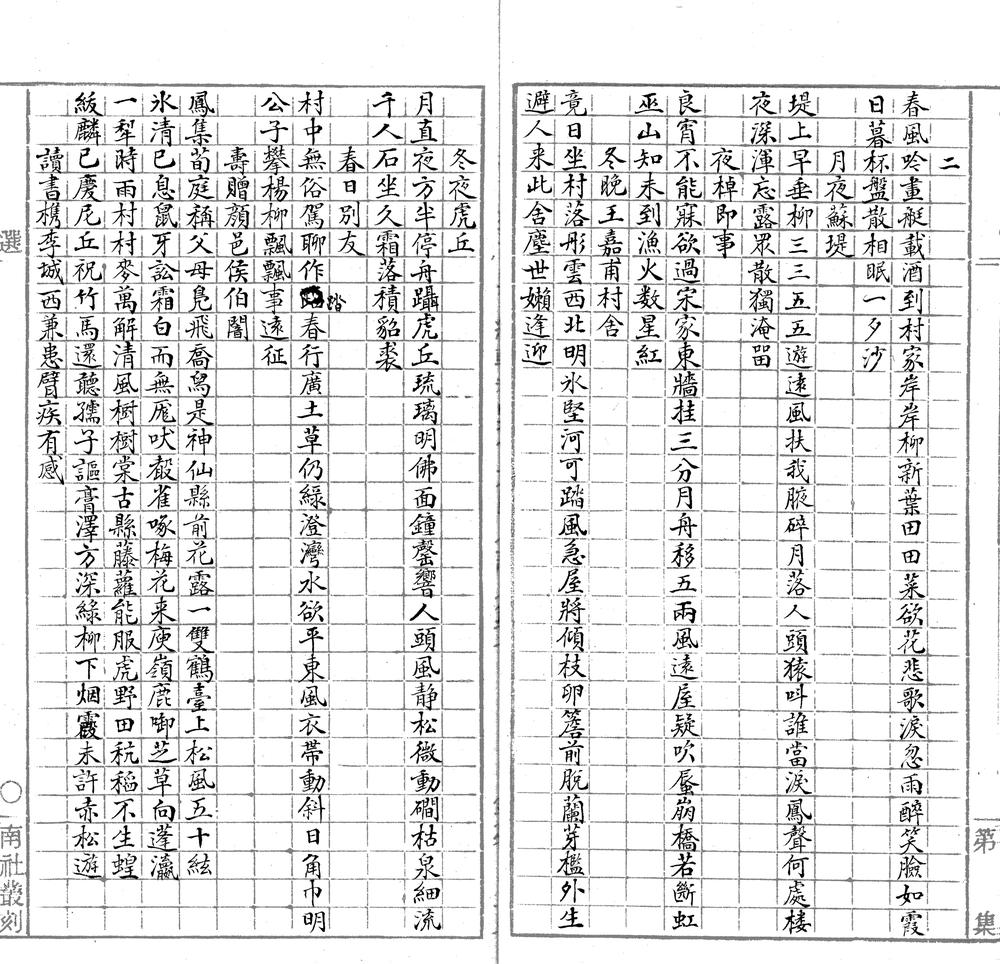 第 集
二
春風吟畫艇載酒到村家岸岸柳新葉田田菜欲花悲歌淚忽雨醉笑臉如霞
日暮杯盤散相眠一夕沙
月夜蘇堤
堤上早垂柳三三五五遊遠風扶我腋碎月落人頭猿叫誰當淚鳳聲何處楼
夜深渾忘露眾散獨淹畱
夜棹即事
良宵不能寐欲過宋家東牆挂三分月舟移五兩風遠屋疑吹蜃崩橋若斷虹
巫山知未到漁火数星紅
冬晚王嘉甫村舍
竟日坐村落彤雲西北明氷堅河可踏風急屋將傾枝卵簷前脫蘭芽檻外生
避人来此舍塵世嬾逢迎
冬夜虎丘
月直夜方半停舟躡虎丘琉璃明佛面鐘罄響人頭風静松微動磵枯泉細流
千人石坐久霜落積貂裘
春日別友
村中無俗駕聊作踏春行廣土草仍綠澄灣水欲平東風衣帶動斜日角巾明
公子攀楊柳飄飄事遠征
壽贈顔邑侯伯闇
鳳集荀庭稱父母鳬飛喬舄是神仙縣前花露一雙鶴臺上松風五十絃
氷清已息鼠牙訟霜白而無厖吠聲雀啄梅花来庾嶺鹿啣芝草向蓬瀛
一犁時雨村村麥萬解清風樹樹棠古縣藤蘿能服虎野田秔稻不生蝗
紱麟已慶尼丘祝竹馬還聽孺子謳膏澤方深綠柳下烟霞未許赤松遊
讀書檇李城西兼患臂疾有感
選
〇南社叢刻